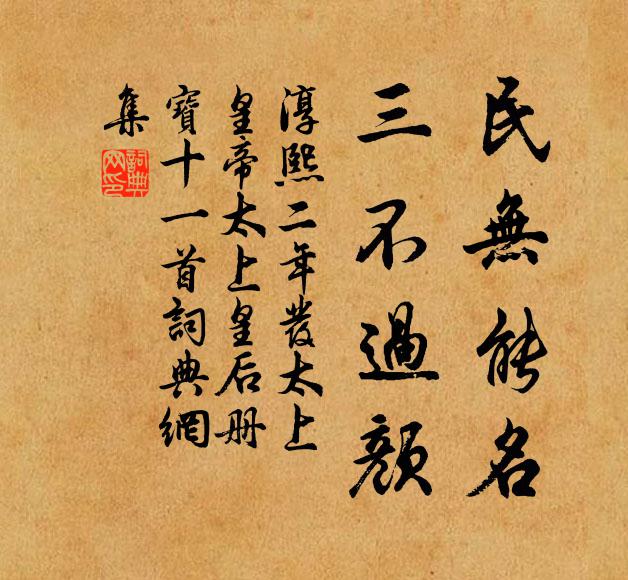 民無能名
三不過顏
淳熙二年發太上
皇帝太上皇后册
寶十一首詞典網
集
詞典
网印